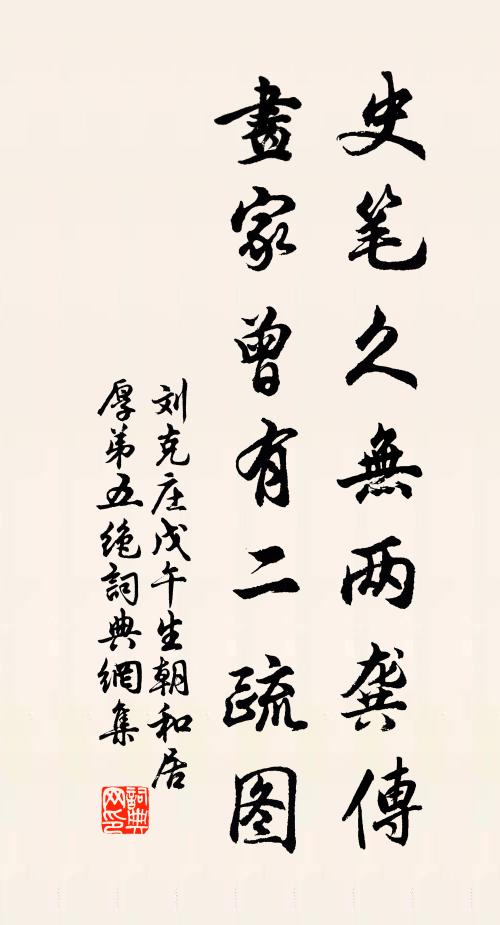 史笔久無两龚傳
畫家曾有二疏图
刘克庄戊午生朝和居
厚弟五绝詞典網集
詞典网印